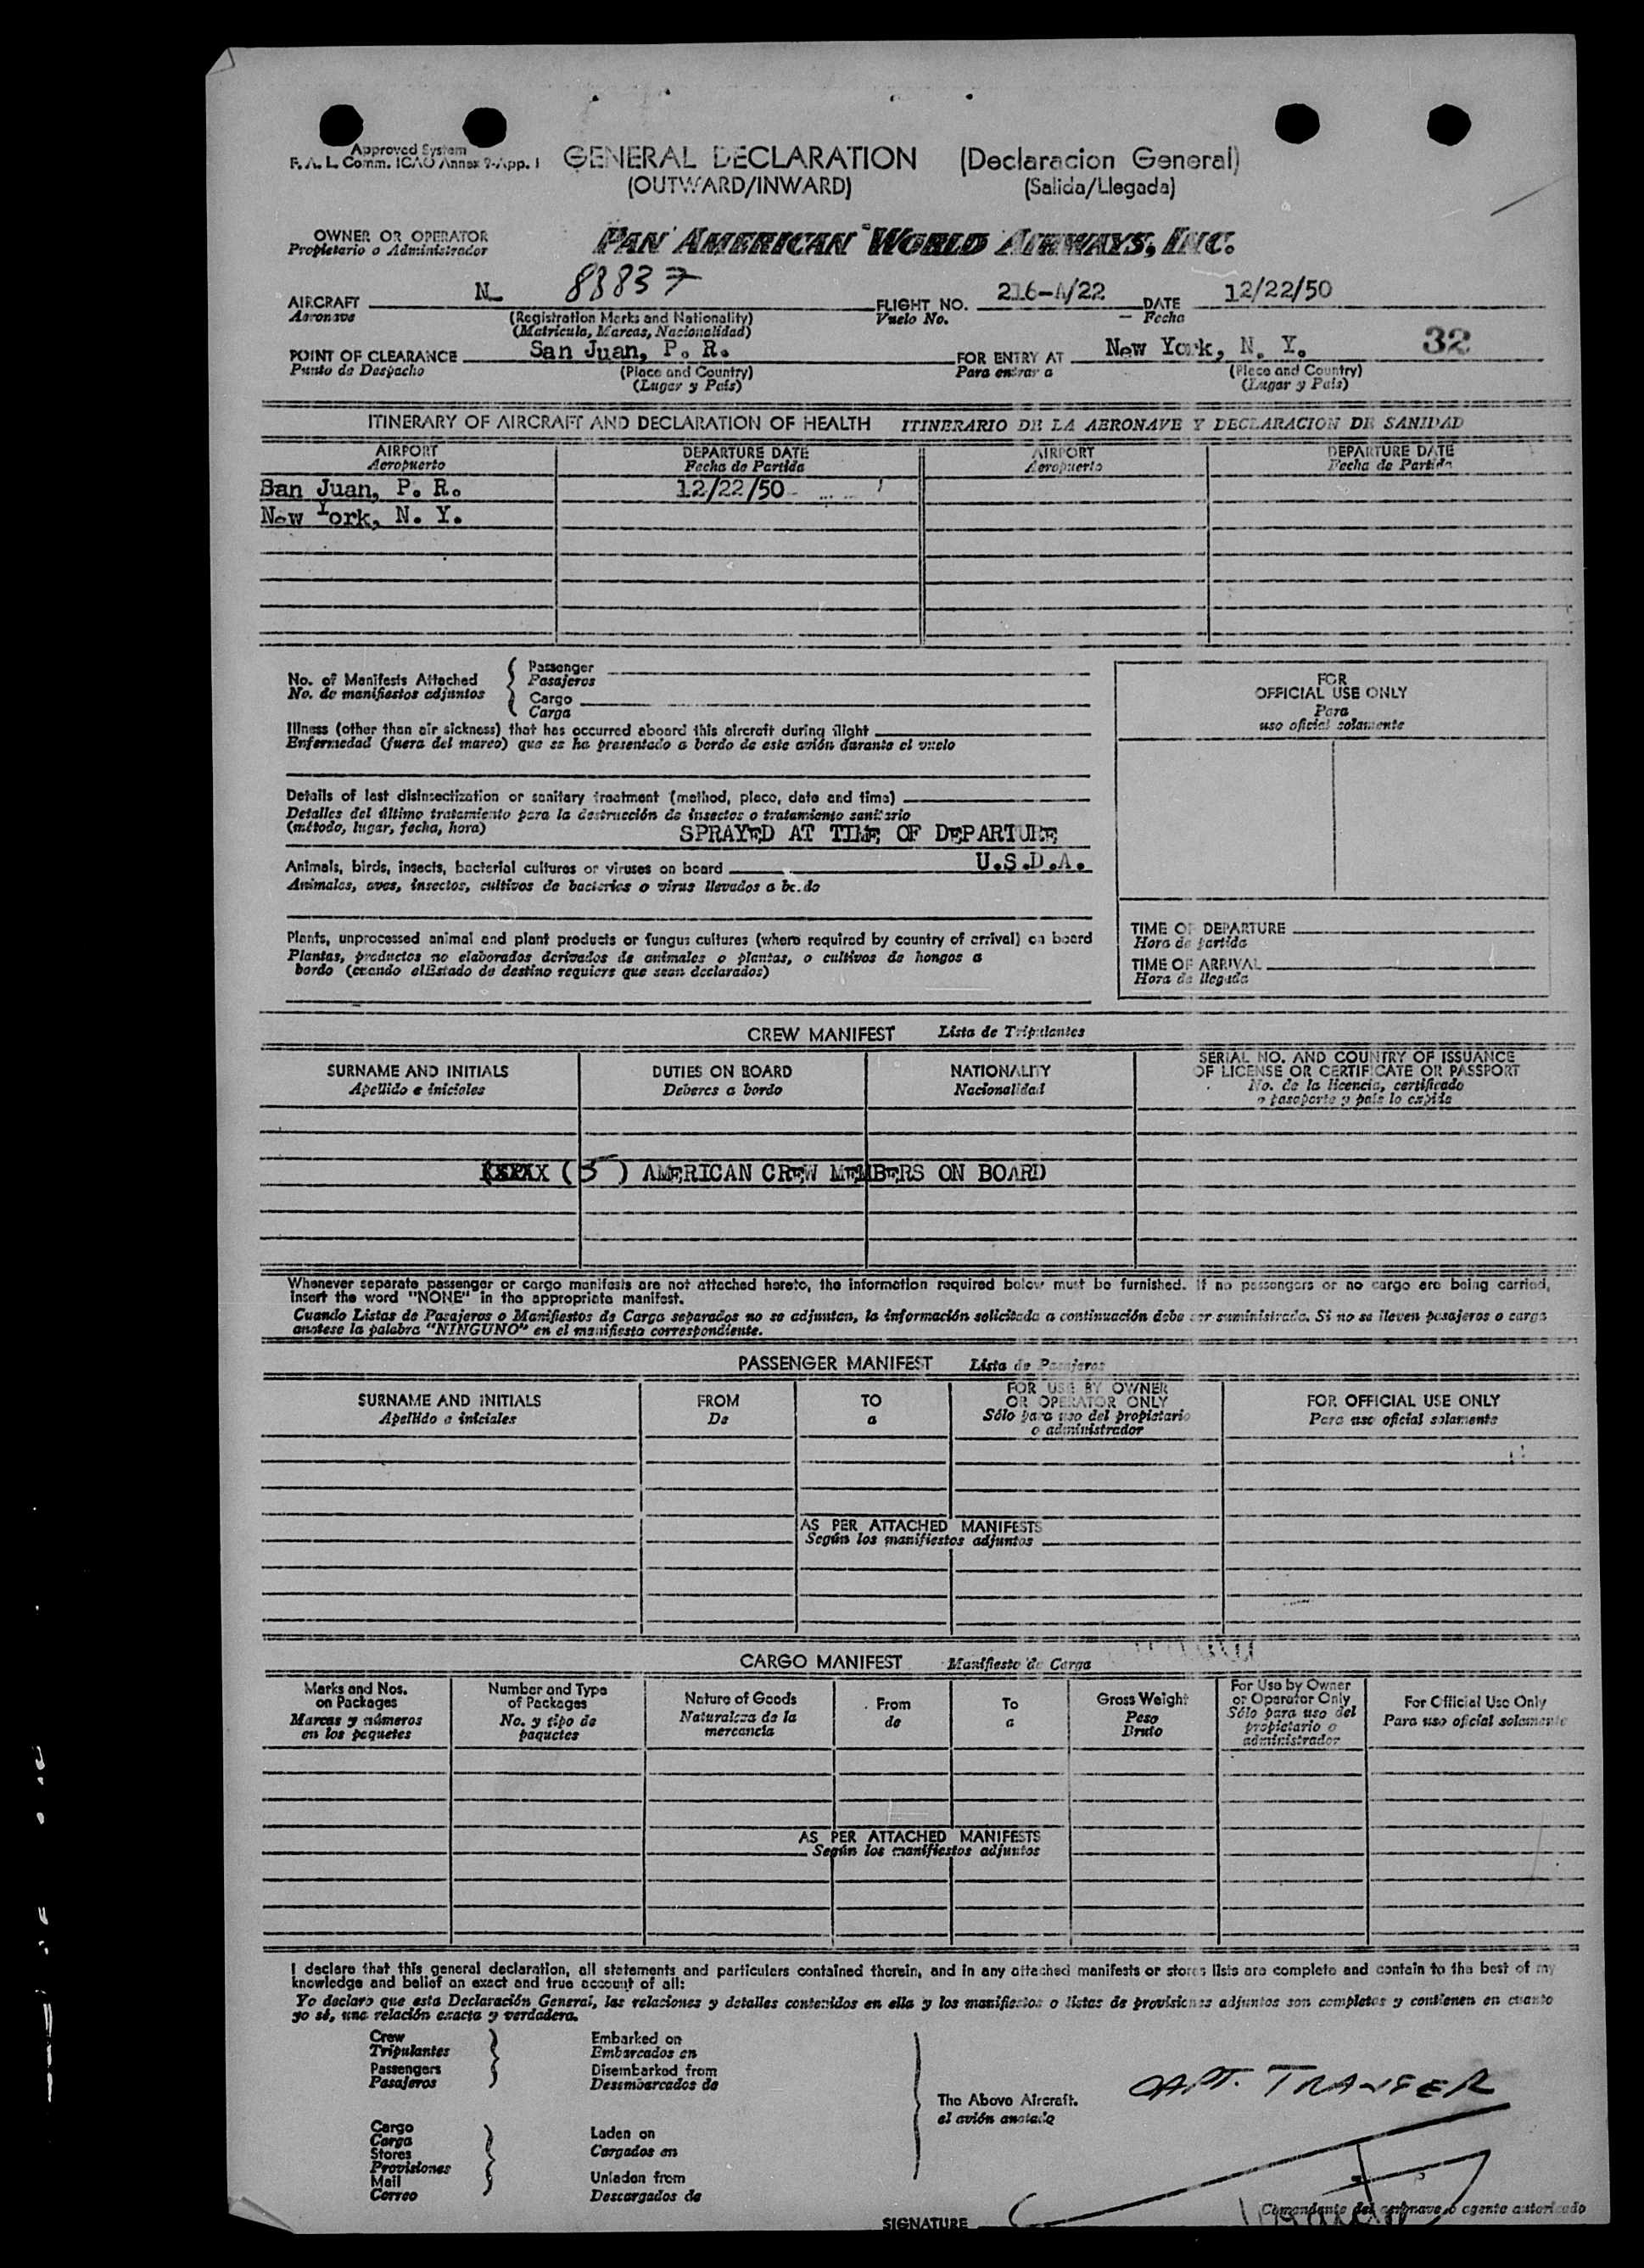 Approved System
F. A. L. Comm. ICAO Annex 9-App. 1
GENERAL DECLARATION (Declaracion General)
(OUTWARD/INWARD) (Salida/Llegada)
OWNER OR OPERATOR
Propietario o Administrador
PAN AMERICAN WORLD AIRWAYS, INC.
AIRCRAFT N- 88837 FLIGHT NO. 216-A/22 DATE 12/22/50
Aeronave (Registration Marks and Nationality) Vuelo No. Fecha
(Matricula, Marcas, Nacionalidad)
POINT OF CLEARANCE San Juan, P. R. FOR ENTRY AT New York, N. Y. 32
Punto de Despacho (Place and Country) Para entrar a (Place and Country)
(Lugar y País) (Lugar y País)
ITINERARY OF AIRCRAFT AND DECLARATION OF HEALTH ITINERARIO DE LA AERONAVE Y DECLARACION DE SANIDAD
AIRPORT DEPARTURE DATE AIRPORT DEPARTURE DATE
Aeropuerto Fecha de Partida Aeropuerto Fecha de Partida
San Juan, P. R. 12/22/50
New York, N. Y.
No. of Manifests Attached
No. de manifiestos adjuntos
Passenger
Pasajeros
Cargo
Carga
FOR
OFFICIAL USE ONLY
Para
uso oficial solamente
Illness (other than air sickness) that has occurred aboard this aircraft during flight
Enfermedad (fuera del mareo) que se ha presentado a bordo de este avión durante el vuelo
Details of last disinsectization or sanitary treatment (method, place, date and time)
Detalles del último tratamiento para la destrucción de insectos o tratamiento sanitario
(método, lugar, fecha, hora) SPRAYED AT TIME OF DEPARTURE
Animals, birds, insects, bacterial cultures or viruses on board U.S.D.A.
Animales, aves, insectos, cultivos de bacterias o virus llevados a bordo
Plants, unprocessed animal and plant products or fungus cultures (where required by country of arrival) on board
Plantas, productos no elaborados derivados de animales o plantas, o cultivos de hongos a
bordo (cuando elEstado de destino requiera que sean declarados)
TIME OF DEPARTURE
Hora de partida
TIME OF ARRIVAL
Hora de llegada
CREW MANIFEST Lista de Tripulantes
SURNAME AND INITIALS DUTIES ON BOARD NATIONALITY SERIAL NO. AND COUNTRY OF ISSUANCE
OF LICENSE OR CERTIFICATE OR PASSPORT
Apellido e iniciales Deberes a bordo Nacionalidad No. de la licencia, certificado
o pasaporte y país lo expide
(5) AMERICAN CREW MEMBERS ON BOARD
Whenever separate passenger or cargo manifests are not attached hereto, the information required below must be furnished. If no passengers or no cargo are being carried,
insert the word "NONE" in the appropriate manifest.
Cuando Listas de Pasajeros o Manifiestos de Carga separados no se adjuntan, la información solicitada a continuación debe ser suministrada. Si no se lleven pasajeros o carga
anotese la palabra "NINGUNO" en el manifiesto correspondiente.
PASSENGER MANIFEST Lista de Pasajeros
SURNAME AND INITIALS FROM TO FOR USE BY OWNER
OR OPERATOR ONLY FOR OFFICIAL USE ONLY
Apellido e iniciales De a Sólo para uso del propietario
o administrador Para uso oficial solamente
AS PER ATTACHED MANIFESTS
Según los manifiestos adjuntos
CARGO MANIFEST Manifiesto de Carga
Marks and Nos.
on Packages
Marcas y números
en los paquetes
Number and Type
of Packages
No. y tipo de
paquetes
Nature of Goods
Naturaleza de la
mercancia
From
de
To
a
Gross Weight
Peso
Bruto
For Use by Owner
or Operator Only
Sólo para uso del
propietario o
administrador
For Official Use Only
Para uso oficial solamente
AS PER ATTACHED MANIFESTS
Según los manifiestos adjuntos
I declare that this general declaration, all statements and particulars contained therein, and in any attached manifests or stores lists are complete and contain to the best of my
knowledge and belief an exact and true account of all:
Yo declaro que esta Declaración General, las relaciones y detalles contenidos en ella y los manifiestos o listas de provisiones adjuntos son completos y contienen en cuanto
yo sé, una relación exacta y verdadera.
Crew
Tripulantes
Passengers
Pasajeros
Embarked on
Embarcados en
Disembarked from
Desembarcados de
Cargo
Carga
Stores
Provisiones
Mail
Correo
Laden on
Cargados en
Unladen from
Descargados de
The Above Aircraft.
el avión anotado
CAPT.
Comandante del aeronave o agente autorizado
SIGNATURE